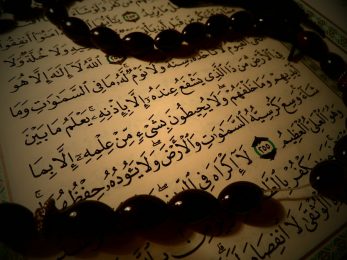 وَلَا خُلَّةٌ وَلَا
ٱللَّهُ لَآ إِلَـٰهَ إِلَّا هُوَ
وَلَا نَوْمٌ لَّهُۥ مَا فِى ٱلسَّمَـٰوَٰتِ وَمَا
فِى ٱلْأَرْضِ مَن ذَا ٱلَّذِى يَشْفَعُ عِندَهُۥٓ إِلَّا بِإِذْنِهِۦ يَعْلَمُ مَا بَيْنَ
أَيْدِيهِمْ وَمَا خَلْفَهُمْ وَلَا يُحِيطُونَ بِشَىْءٍ مِّنْ عِلْمِهِۦٓ إِلَّا بِمَا
شَآءَ وَسِعَ كُرْسِيُّهُ ٱلسَّمَـٰوَٰتِ وَٱلْأَرْضَ وَلَا يَـُٔودُهُۥ حِفْظُهُمَا
وَهُوَ ٱلْعَلِىُّ ٱلْعَظِيمُ ٢٥٥ لَآ إِكْرَاهَ فِى
يَكْفُرْ
ٱلْوُثْقَىٰ لَا ٱنفِصَامَ